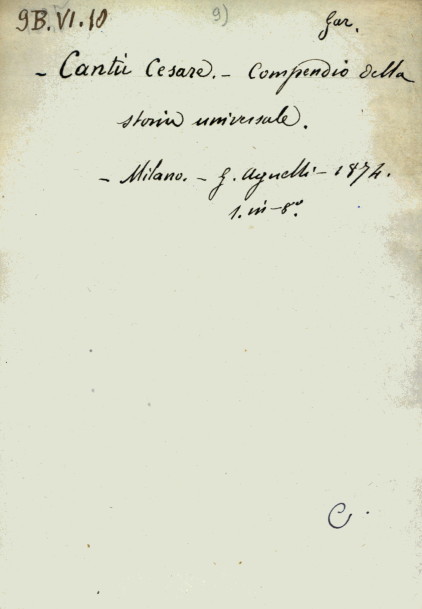 9B.VI.10 9) Gar.
- Cantù Cesare. - Compendio della
storia universale.
- Milano. - G. Agnelli - 1874.
1. in-8º.
C.